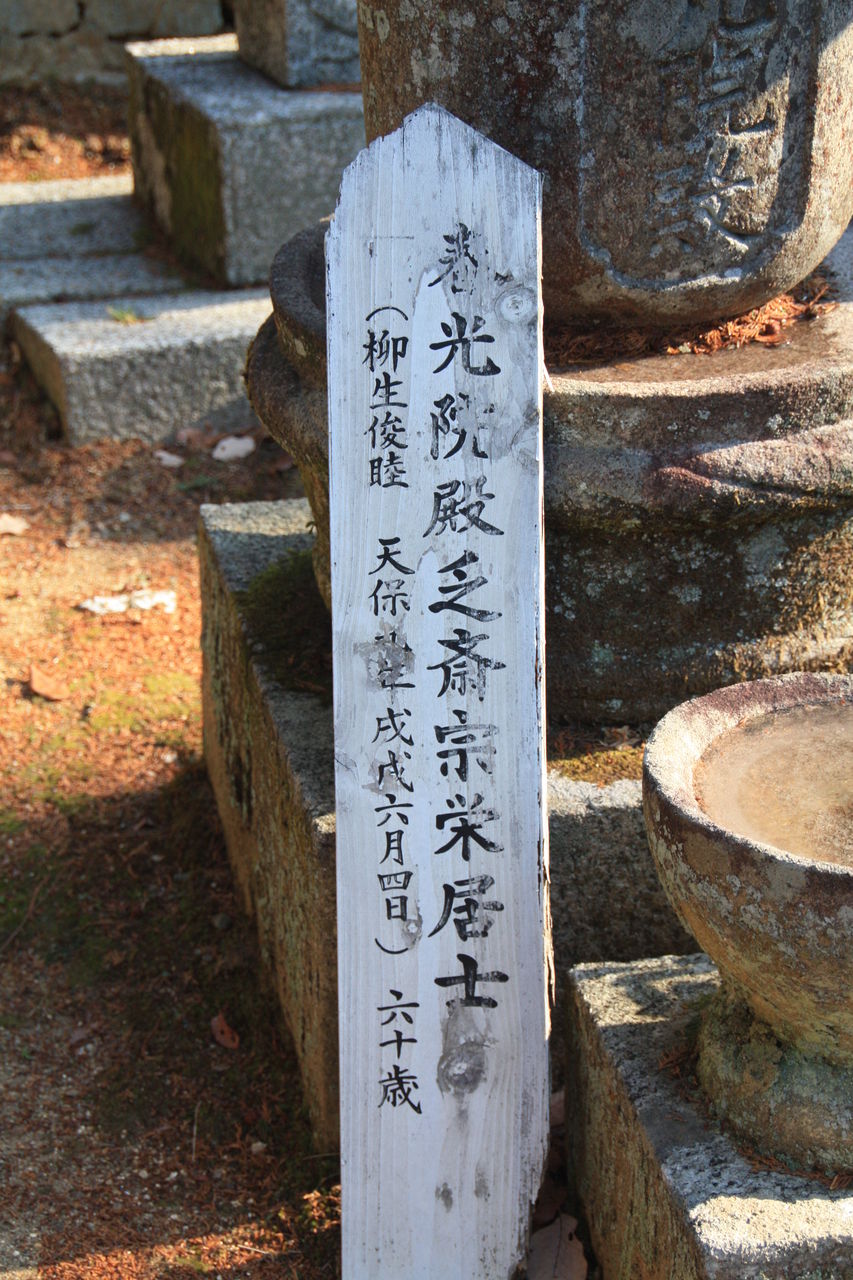 春光院殿乏斎宗栄居士
（柳生俊睦　天保九年戊戌六月四日）六十歳